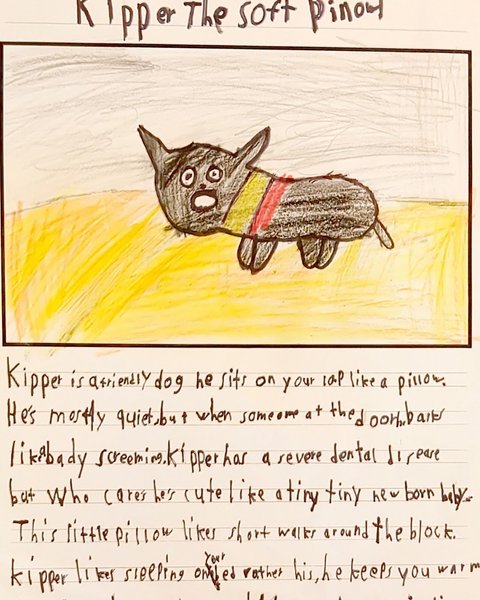 Kipper The Soft pinow
Kipper is a friendly dog he sits on your lap like a pillow.
He's mostly quiet, but when someome at the door h, barks
like a bady screeming. Kipper has a severe dental disease
but who cares he's cute like a tiny tiny new born baby.
This little pillow likes short walks around the block.
Kipper likes sleeping on your bed rather his, he keeps you warm